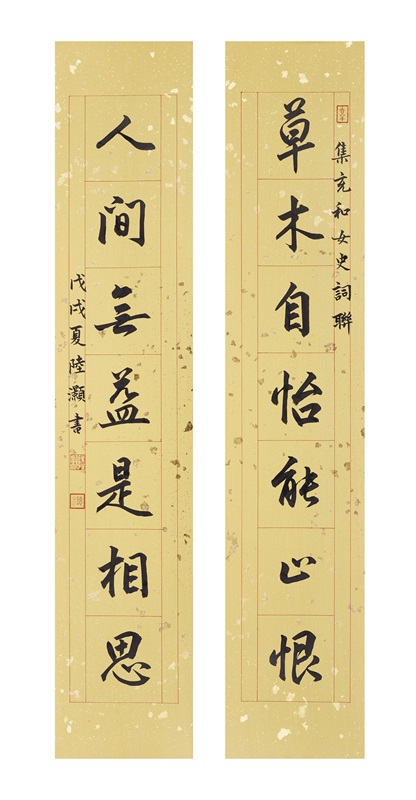 集充和女史詞聯
草木自怡能止恨
人间無益是相思
戊戌夏陸灝書